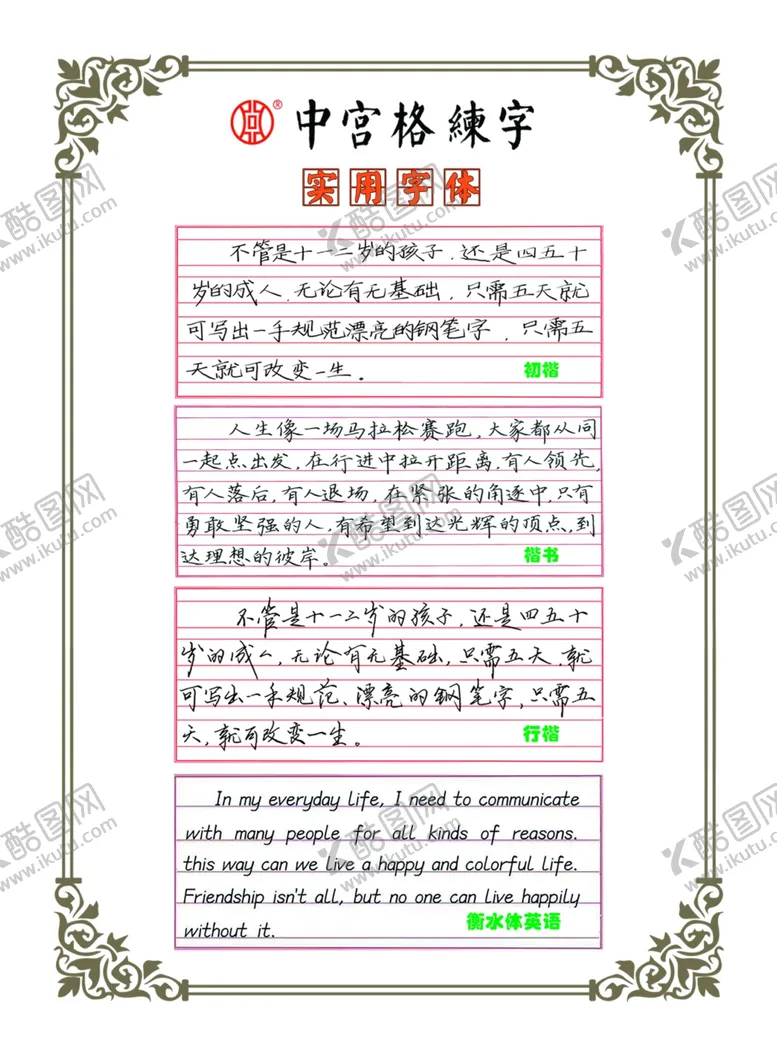 ®
中宫格練字
实用字体
不管是十一二岁的孩子.还是四五十
岁的成人.无论有无基础，只需五天就
可写出一手规范漂亮的钢笔字，只需五
天就可改变一生。
初楷
人生像一场马拉松赛跑，大家都从同
一起点出发，在行进中拉开距离，有人领先，
有人落后，有人退场，在紧张的角逐中，只有
勇敢坚强的人，有希望到达光辉的顶点，到
达理想的彼岸。
楷书
不管是十一二岁的孩子，还是四五十
岁的成人，无论有无基础，只需五天，就
可写出一手规范、漂亮的钢笔字，只需五
天，就可改变一生。
行楷
In my everyday life, I need to communicate
with many people for all kinds of reasons.
this way can we live a happy and colorful life.
Friendship isn't all, but no one can live happily
without it.
衡水体英语
酷图网
www.ikutu.com